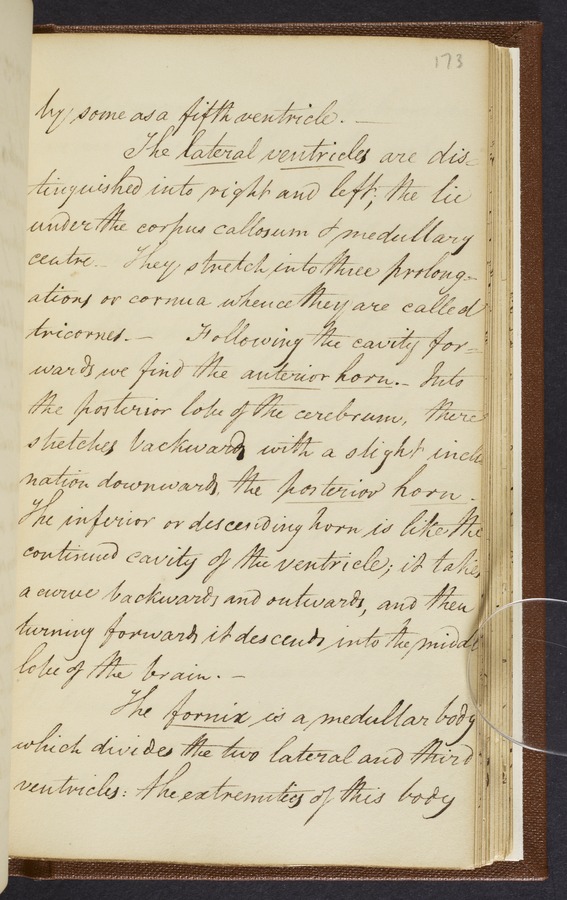 173
by some as a fifth ventricle. —
The lateral ventricles are dis=
tinguished into right and left; the lie
under the corpus callosum & medullary
centre. — They stretch into three prolong=
ations or cornua whence they are called
tricornes. — Following the cavity for=
wards we find the anterior horn. — Into
the posterior lobe of the cerebrum, there
stretches backwards with a slight incli
nation downwards, the posterior horn.
The inferior or descending horn is like the
continued cavity of the ventricle; it takes
a curve backwards and outwards, and then
turning forwards it descends into the middle
lobe of the brain. —
The fornix is a medullar body
which divides the two lateral and third
ventricles: the extremities of this body